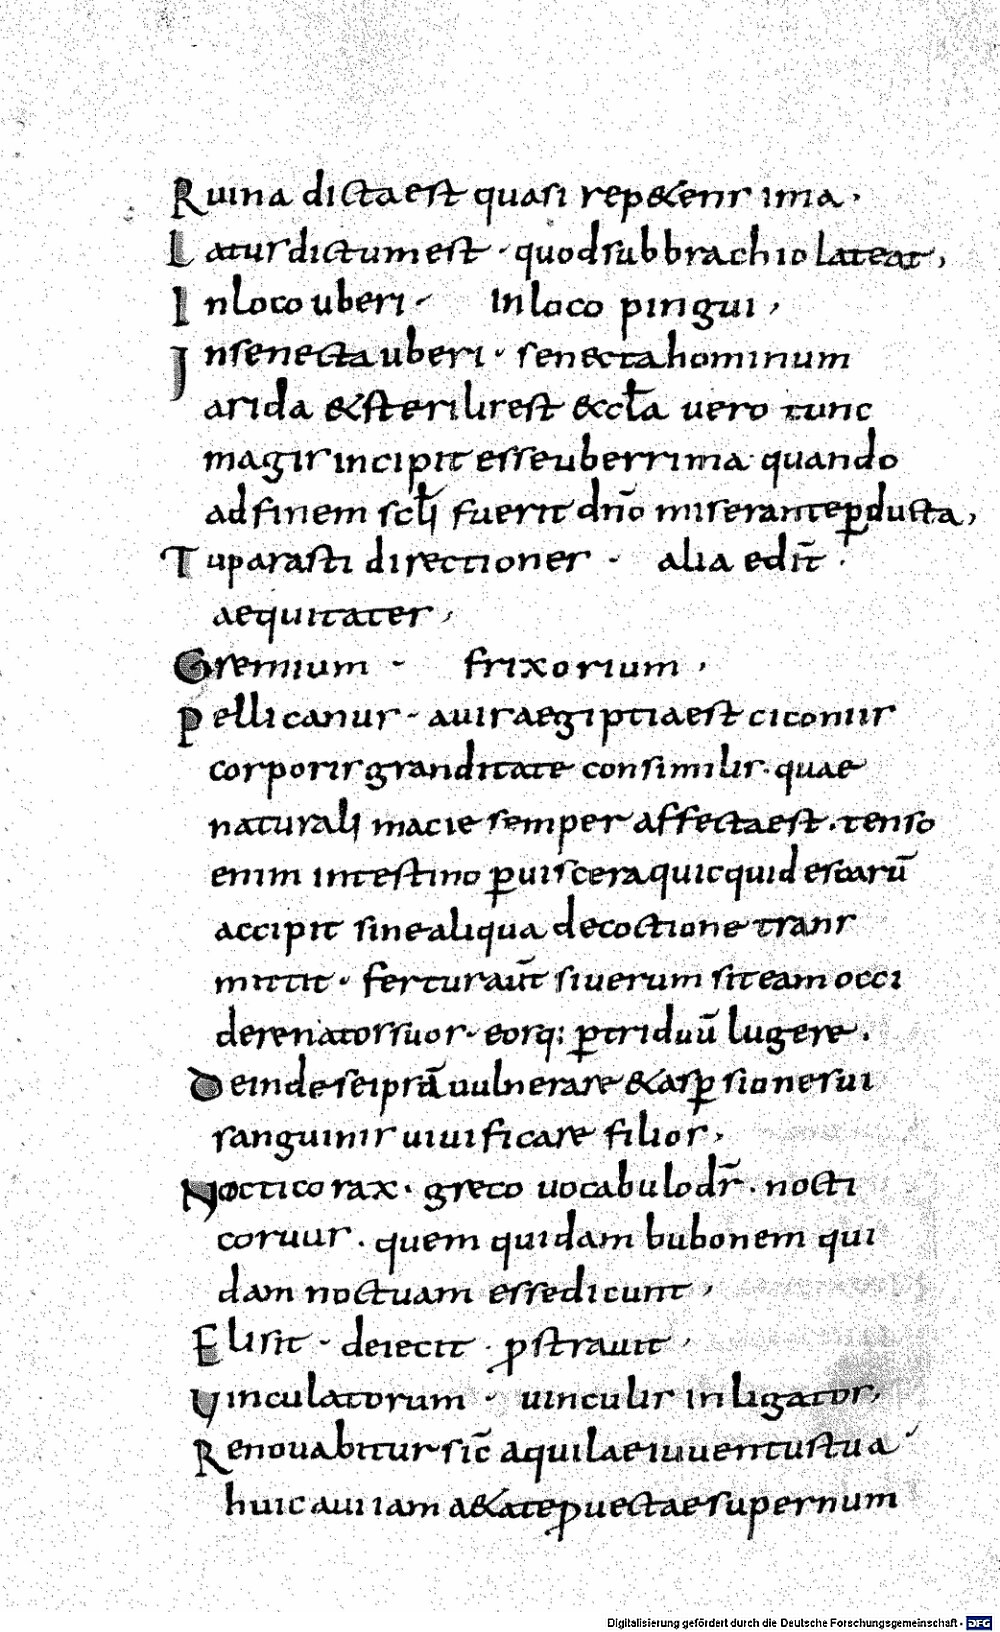 Ruina dicta est quasi repetens ima.
Latus dictum est · quod sub brachio lateat,
In loco uberi · In loco pingui,
In senecta uberi · senecta hominum
arida & sterilis est & ccła uero tunc
magis incipit esse uberrima quando
ad finem scłi fuerit dño miserante ꝑducta,
Tu parasti directiones · alia edit̄ ·
aequitates,
Gremium · frixorium,
Pellicanus · auis aegiptia est ciconiis
corporis granditate consimilis · quae
naturali macie semper affecta est · tenso
enim intestino ꝑ uiscera quicquid escarū
accipit sine aliqua decoctione trans
mittit · fertur aut̄ si uerum sit eam occi
dere natos suos · eosq; ꝑ triduū lugere ·
Deinde se ipsā uulnerare & aspꝑsione sui
sanguinis uiuificare filios,
Nocticorax · greco uocabulo dr̄ · nocti
coruus · quem quidam bubonem qui
dam noctuam esse dicunt,
Elisit · deiecit · ꝓstrauit,
Vinculatorum · uinculis inligatos,
Renouabitur sic̄ aquilae iuuentus tua
huic aui iam aetate ꝓuectae supernum
Digitalisierung gefördert durch die Deutsche Forschungsgemeinschaft - DFG